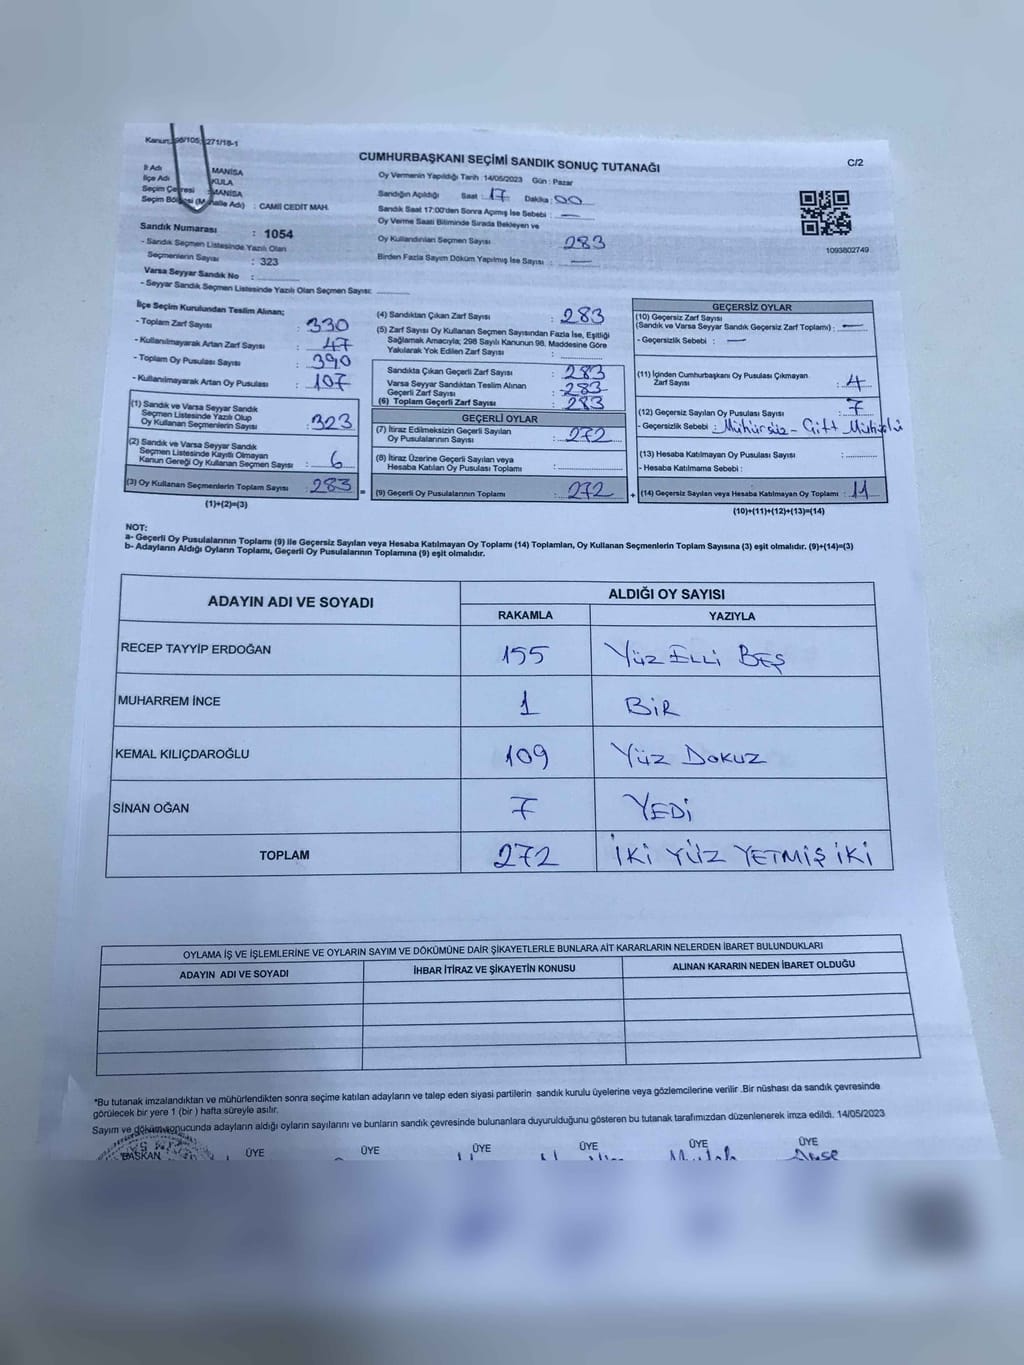 Kanun: 98/105; 271/18-1
C/2
CUMHURBAŞKANI SEÇİMİ SANDIK SONUÇ TUTANAĞI
İl Adı MANİSA
İlçe Adı KULA
Seçim Çevresi : MANİSA
Seçim Bölgesi (Mahalle Adı) : CAMİİ CEDİT MAH.
Sandık Numarası : 1054
- Sandık Seçmen Listesinde Yazılı Olan
Seçmenlerin Sayısı : 323
Varsa Seyyar Sandık No :
- Seyyar Sandık Seçmen Listesinde Yazılı Olan Seçmen Sayısı:
Oy Vermenin Yapıldığı Tarih :14/05/2023 Gün : Pazar
Sandığın Açıldığı Saat : 17 Dakika : 00
Sandık Saat 17:00'den Sonra Açımış İse Sebebi : —
Oy Verme Saati Bitiminde Sırada Bekleyen ve
Oy Kullandırılan Seçmen Sayısı 283
Birden Fazla Sayım Döküm Yapılmış İse Sayısı : —
1093802749
İlçe Seçim Kurulundan Teslim Alınan;
- Toplam Zarf Sayısı : 330
- Kullanılmayarak Artan Zarf Sayısı : 47
- Toplam Oy Pusulası Sayısı : 390
- Kullanılmayarak Artan Oy Pusulası : 107
(1) Sandık ve Varsa Seyyar Sandık
Seçmen Listesinde Yazılı Olup
Oy Kullanan Seçmenlerin Sayısı : 323
(2) Sandık ve Varsa Seyyar Sandık
Seçmen Listesinde Kayıtlı Olmayan
Kanun Gereği Oy Kullanan Seçmen Sayısı : 6
(3) Oy Kullanan Seçmenlerin Toplam Sayısı : 283 =
(1)+(2)=(3)
(4) Sandıktan Çıkan Zarf Sayısı : 283
(5) Zarf Sayısı Oy Kullanan Seçmen Sayısından Fazla İse, Eşitliği
Sağlamak Amacıyla; 298 Sayılı Kanunun 98. Maddesine Göre
Yakılarak Yok Edilen Zarf Sayısı :
Sandıkta Çıkan Geçerli Zarf Sayısı : 283
Varsa Seyyar Sandıktan Teslim Alınan
Geçerli Zarf Sayısı : 283
(6) Toplam Geçerli Zarf Sayısı : 283
GEÇERLİ OYLAR
(7) İtiraz Edilmeksizin Geçerli Sayılan
Oy Pusulalarının Sayısı : 272
(8) İtiraz Üzerine Geçerli Sayılan veya
Hesaba Katılan Oy Pusulası Toplamı :
(9) Geçerli Oy Pusulalarının Toplamı : 272 +
GEÇERSİZ OYLAR
(10) Geçersiz Zarf Sayısı
(Sandık ve Varsa Seyyar Sandık Geçersiz Zarf Toplamı) : —
- Geçersizlik Sebebi : —
(11) İçinden Cumhurbaşkanı Oy Pusulası Çıkmayan
Zarf Sayısı : 4
(12) Geçersiz Sayılan Oy Pusulası Sayısı : 7
- Geçersizlik Sebebi : Mühürsüz - Çift Mühürlü
(13) Hesaba Katılmayan Oy Pusulası Sayısı :
- Hesaba Katılmama Sebebi :
(14) Geçersiz Sayılan veya Hesaba Katılmayan Oy Toplamı : 11
(10)+(11)+(12)+(13)=(14)
NOT:
a- Geçerli Oy Pusulalarının Toplamı (9) ile Geçersiz Sayılan veya Hesaba Katılmayan Oy Toplamı (14) Toplamları, Oy Kullanan Seçmenlerin Toplam Sayısına (3) eşit olmalıdır. (9)+(14)=(3)
b- Adayların Aldığı Oyların Toplamı, Geçerli Oy Pusulalarının Toplamına (9) eşit olmalıdır.
ADAYIN ADI VE SOYADI
ALDIĞI OY SAYISI
RAKAMLA YAZIYLA
RECEP TAYYİP ERDOĞAN 155 Yüz ELLİ BEŞ
MUHARREM İNCE 1 BİR
KEMAL KILIÇDAROĞLU 109 Yüz DOKUZ
SİNAN OĞAN 7 YEDİ
TOPLAM 272 İKİ YÜZ YETMİŞ İKİ
OYLAMA İŞ VE İŞLEMLERİNE VE OYLARIN SAYIM VE DÖKÜMÜNE DAİR ŞİKAYETLERLE BUNLARA AİT KARARLARIN NELERDEN İBARET BULUNDUKLARI
ADAYIN ADI VE SOYADI İHBAR İTİRAZ VE ŞİKAYETİN KONUSU ALINAN KARARIN NEDEN İBARET OLDUĞU
*Bu tutanak imzalandıktan ve mühürlendikten sonra seçime katılan adayların ve talep eden siyasi partilerin sandık kurulu üyelerine veya gözlemcilerine verilir .Bir nüshası da sandık çevresinde
görülecek bir yere 1 (bir ) hafta süreyle asılır.
Sayım ve döküm sonucunda adayların aldığı oyların sayılarını ve bunların sandık çevresinde bulunanlara duyurulduğunu gösteren bu tutanak tarafımızdan düzenlenerek imza edildi. 14/05/2023
BAŞKAN ÜYE ÜYE ÜYE ÜYE ÜYE ÜYE